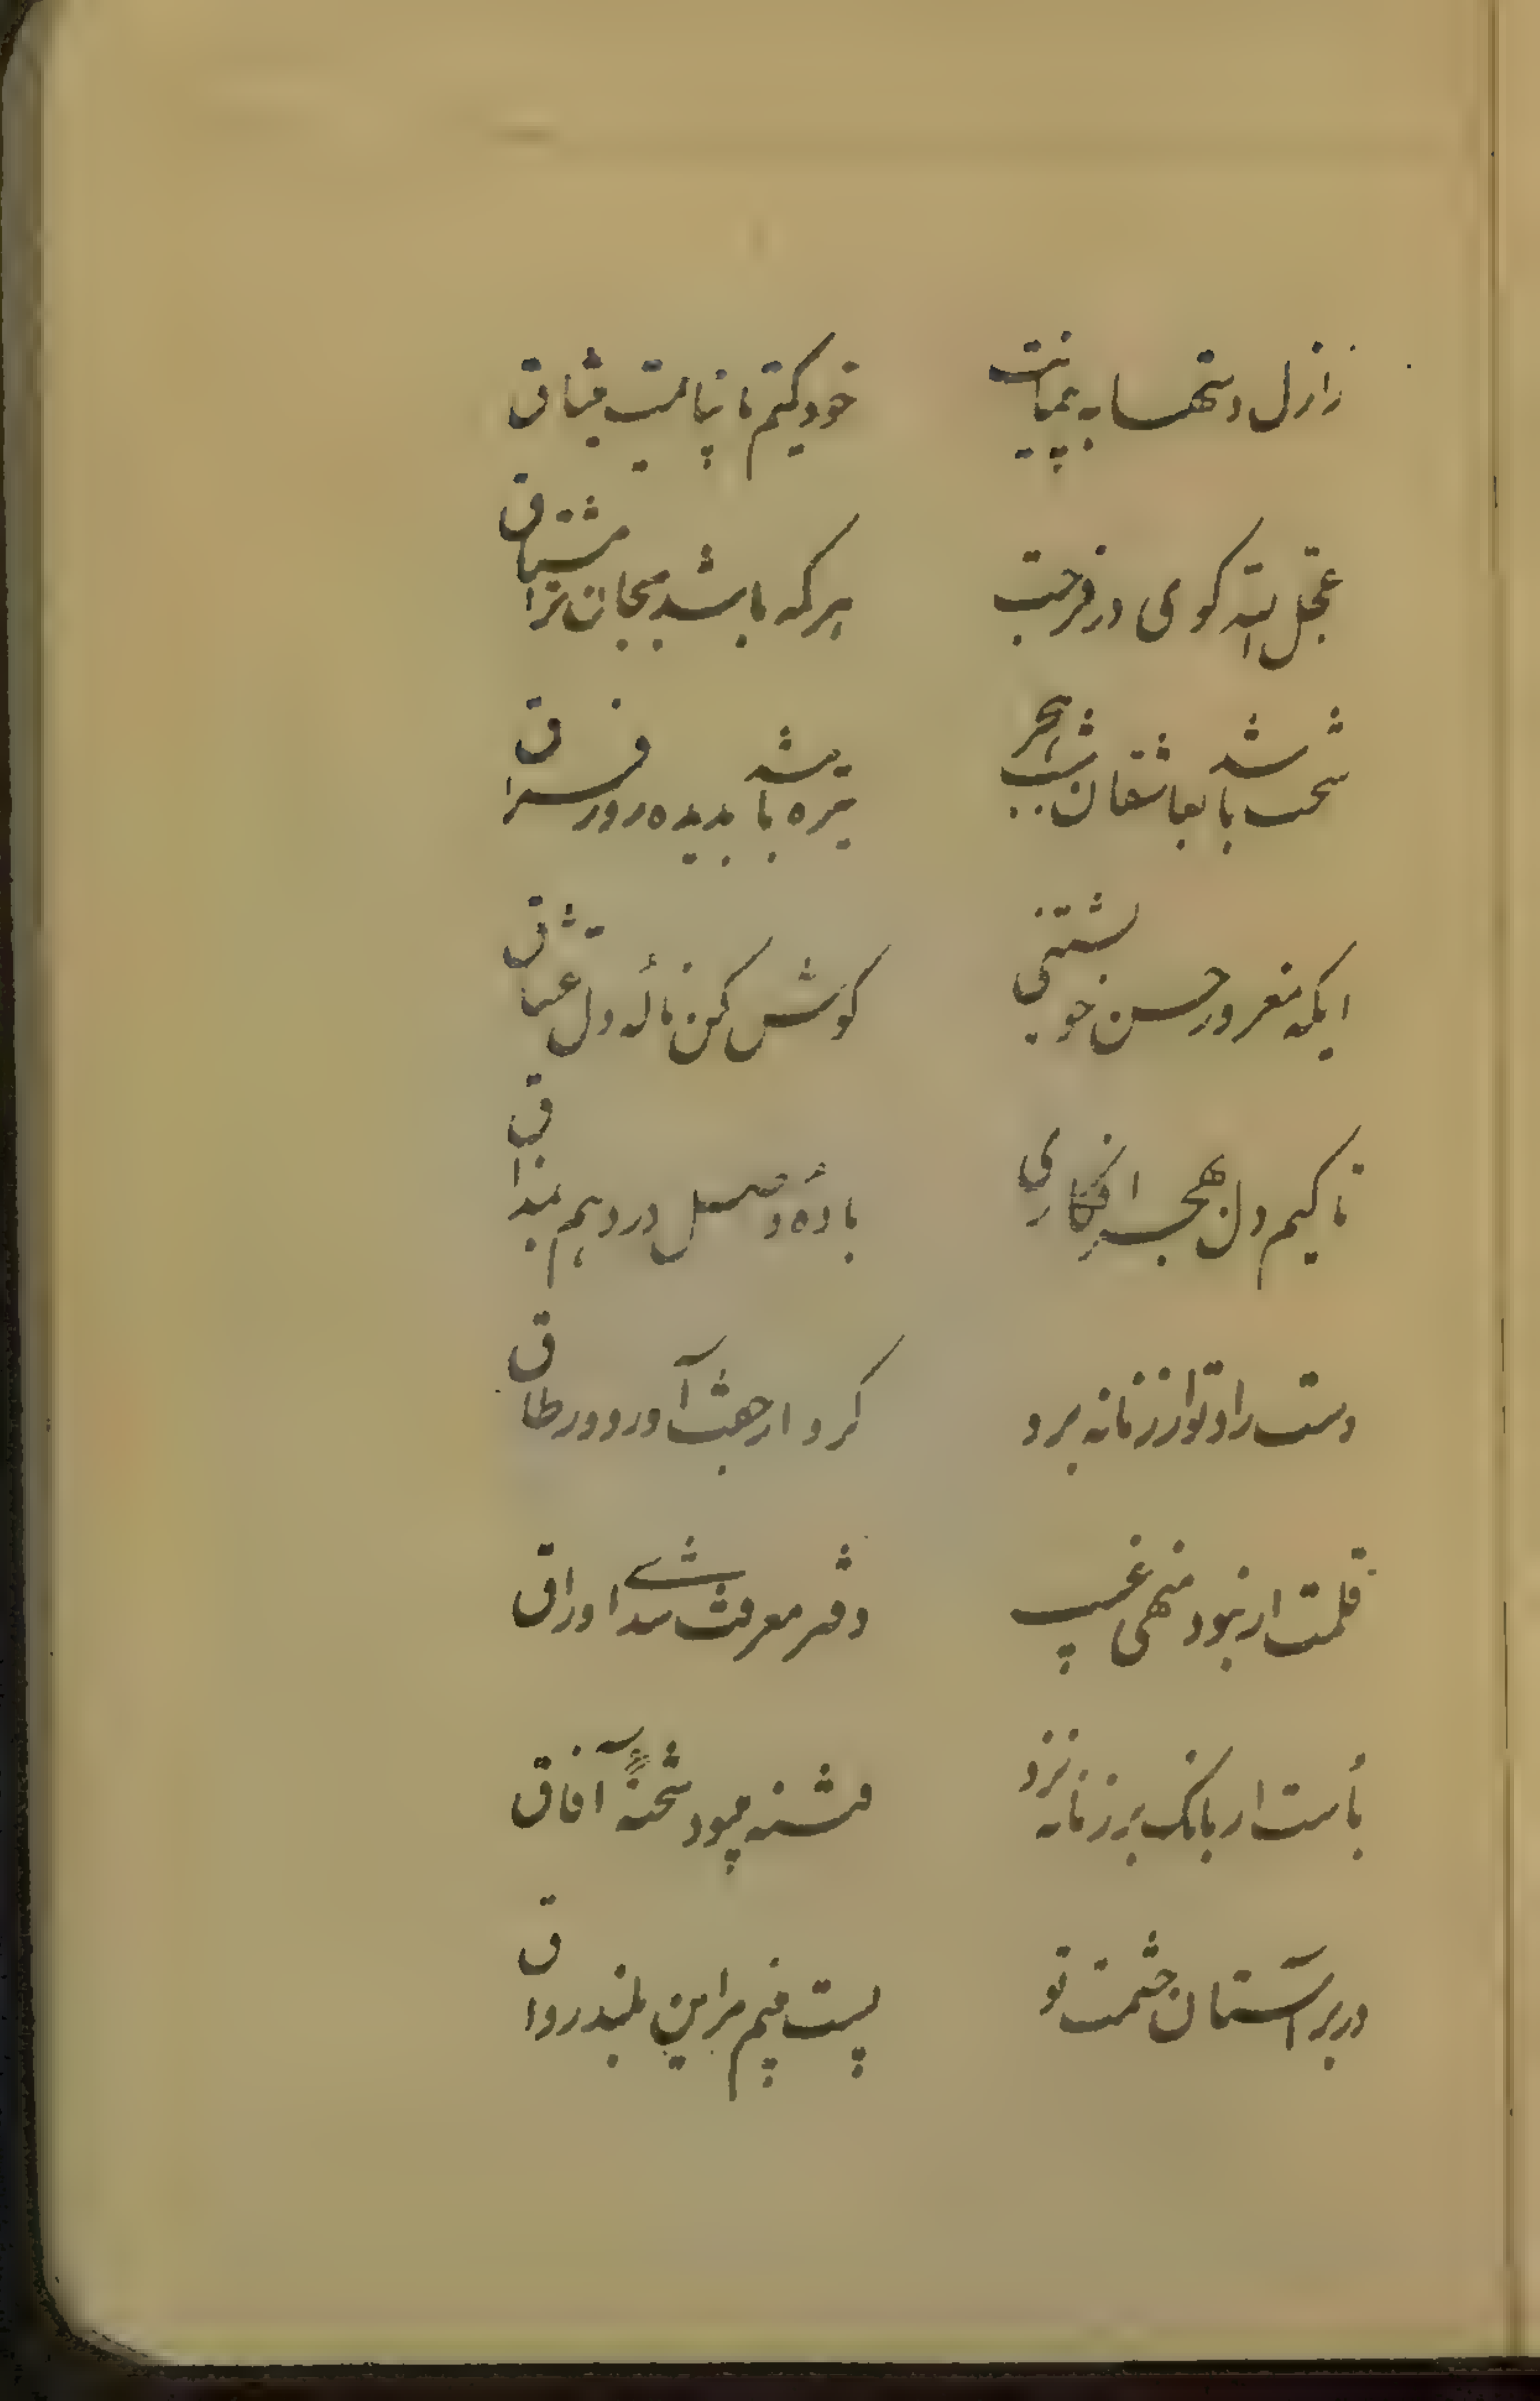 زازل دستها به پیمانت خود کیتم تا بپایمت میثاق
عجل الله کوی در فرجت هر که باشد بجان ترا مشتاق
سخت باشد بعاشقان شب هجر تیره باشد بدیده روز فراق
ایکه مغرور حسن خویشتنی کوش کن نالهٔ دل عشاق
تا کیم دل بهجر افکاری بادهٔ وصل در دهم بمذاق
دست راد تو از زمانه برد کرد ار جفت آورد ور طاق
قلمت ار نبود منهی غیب دفتر معرفت شدی اوراق
بأست ار بانک بر زمانه نزد فتنه میبود شحنهٔ آفاق
در بر آستان حشمت تو پست بینم مر این بلند رواق